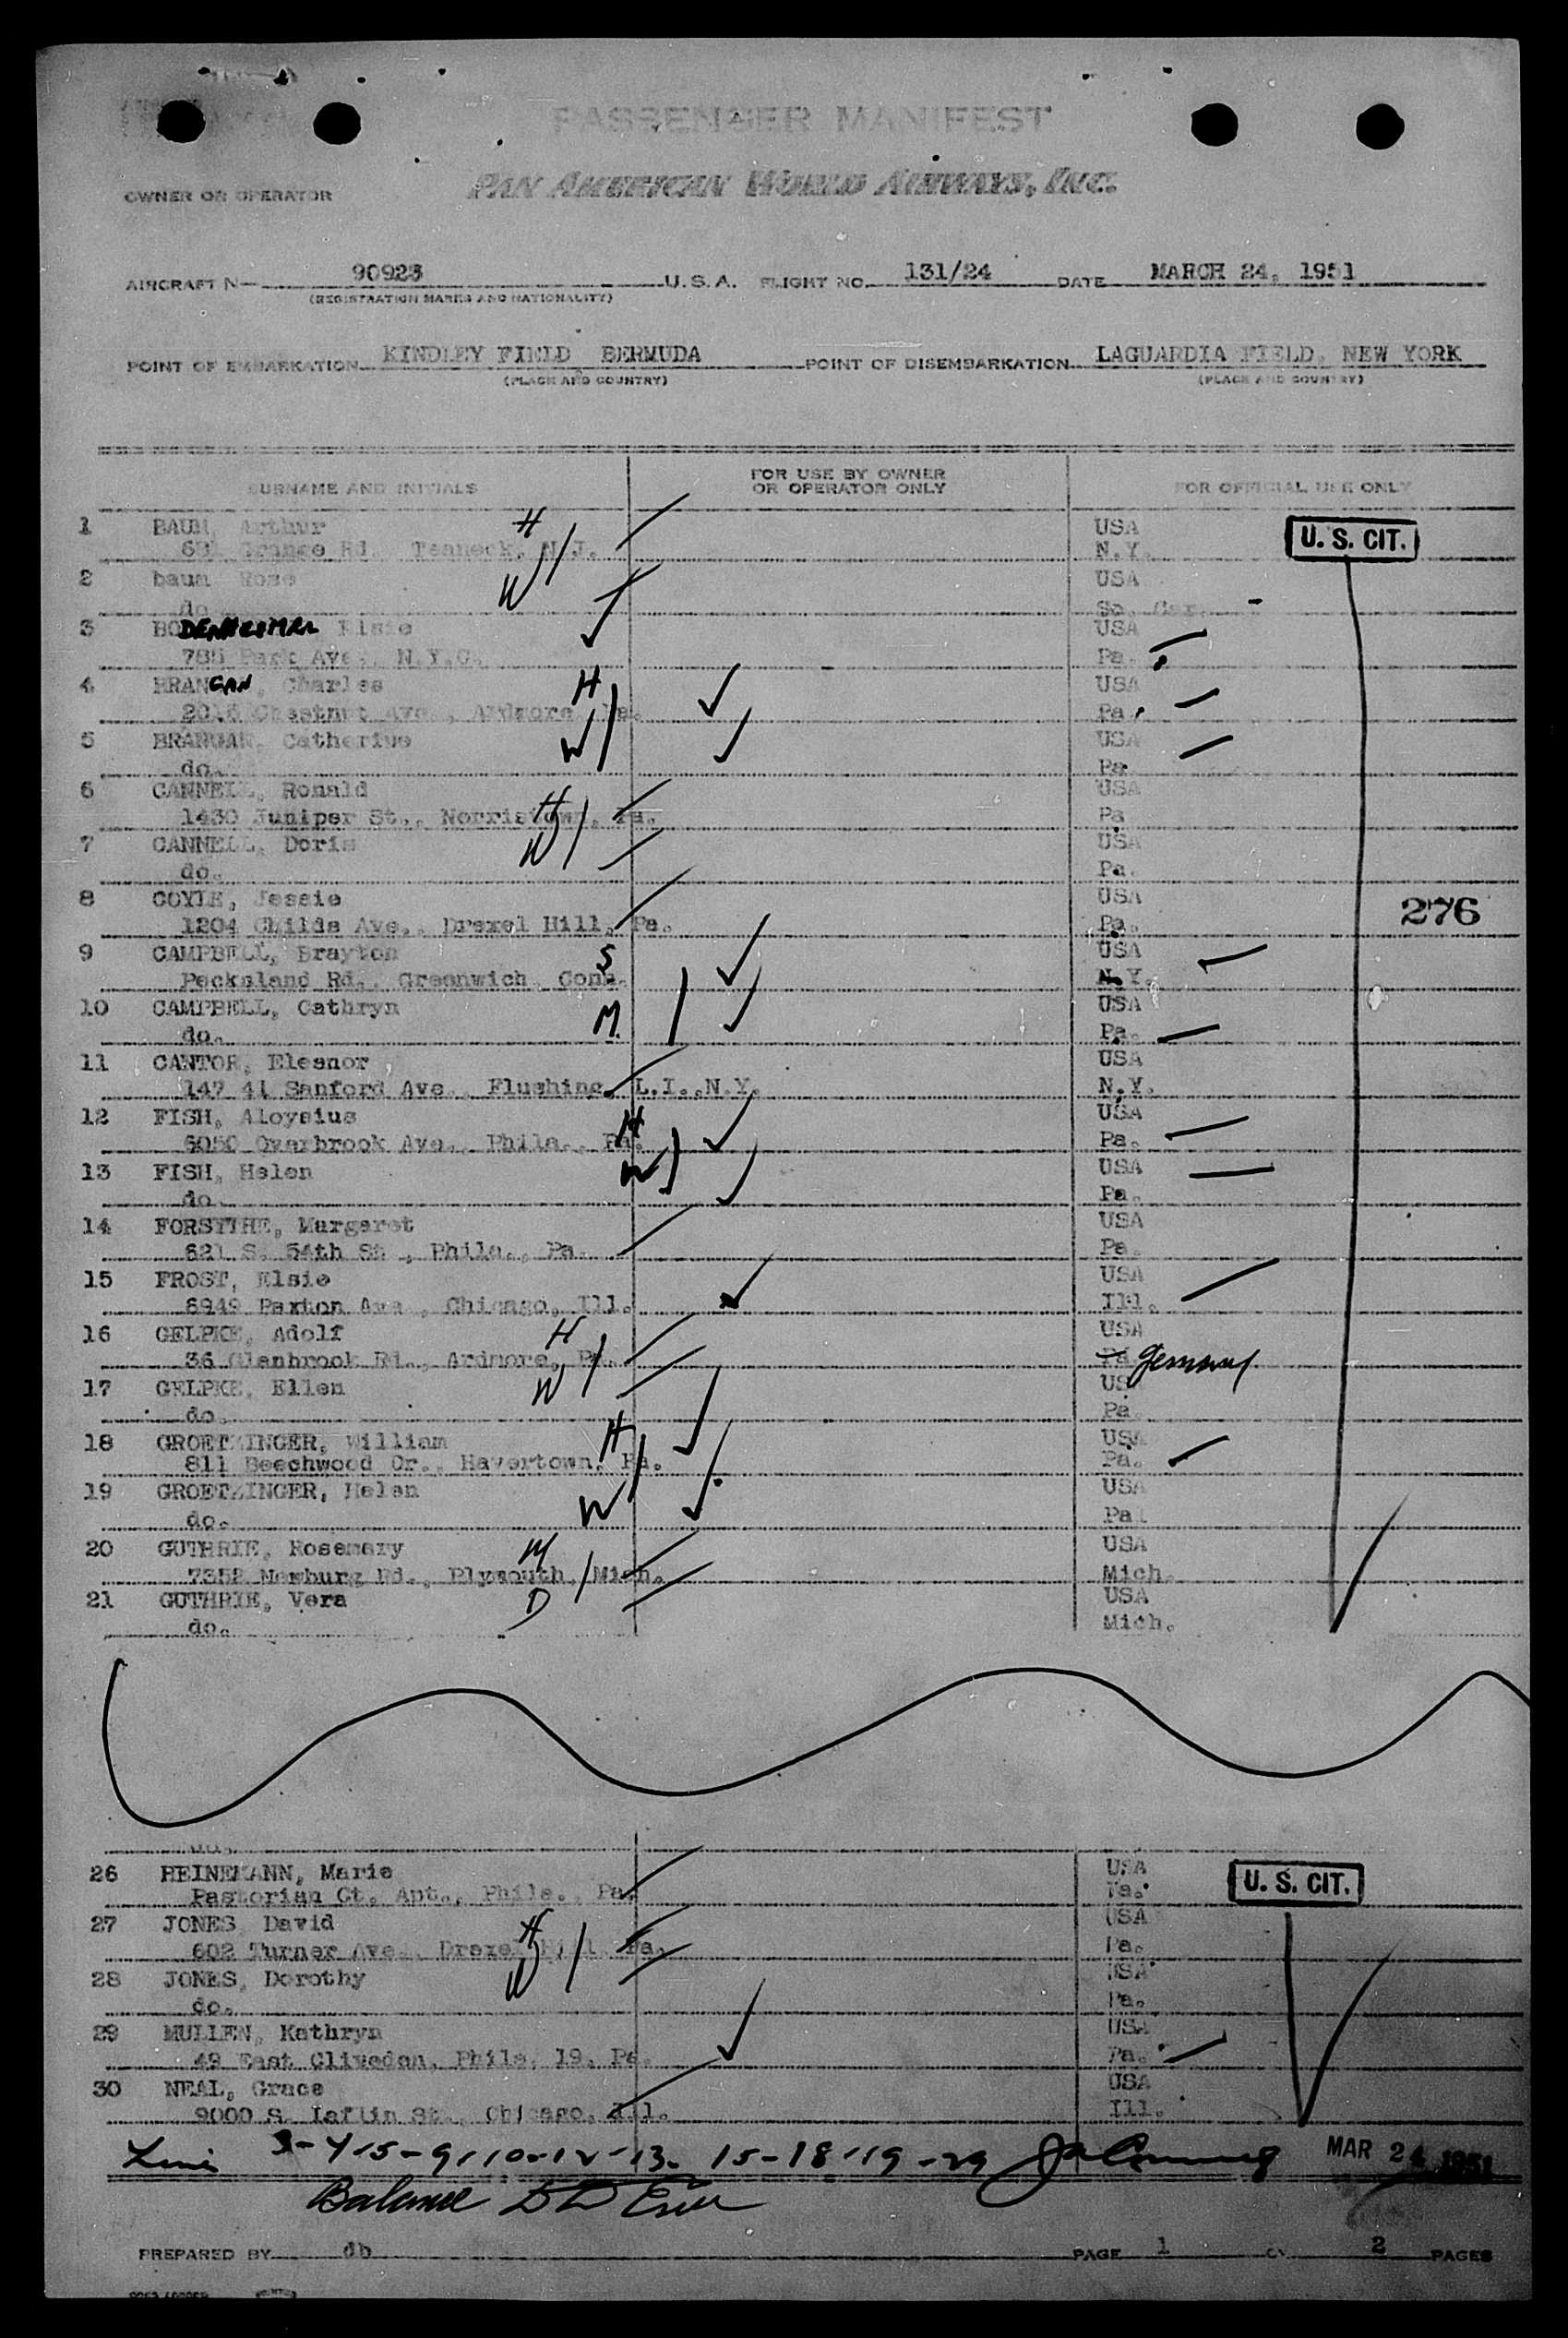 PASSENGER MANIFEST
OWNER OR OPERATOR PAN AMERICAN WORLD AIRWAYS, INC.
AIRCRAFT N— 90923 U.S.A. FLIGHT NO. 131/24 DATE MARCH 24, 1951
(REGISTRATION MARKS AND NATIONALITY)
POINT OF EMBARKATION KINDLEY FIELD BERMUDA POINT OF DISEMBARKATION LAGUARDIA FIELD, NEW YORK
(PLACE AND COUNTRY) (PLACE AND COUNTRY)
SURNAME AND INITIALS FOR USE BY OWNER OR OPERATOR ONLY FOR OFFICIAL USE ONLY
1 BAUM, Arthur H USA U. S. CIT.
Grange Rd. Teaneck, N.J. N.Y.
2 baum Rose W USA
do. So. Car.
3 Elsie USA
Park Ave., N.Y.C. Pa.
4 BRANGAN, Charles H USA
Chestnut Ave., Ardmore, Pa. Pa.
5 BRANGAN, Catherine W USA
do. Pa
6 CANNELL, Ronald H USA
1430 Juniper St., Norristown, Pa. Pa
7 CANNELL, Doris W USA
do. Pa.
8 COYLE, Jessie USA
1204 Childs Ave., Drexel Hill, Pa. Pa. 276
9 CAMPBELL, Brayton S USA
Pecksland Rd., Greenwich, Conn. N.Y.
10 CAMPBELL, Cathryn M. USA
do. Pa.
11 CANTOR, Eleanor USA
147 41 Sanford Ave., Flushing, L.I., N.Y. N.Y.
12 FISH, Aloysius H USA
6050 Overbrook Ave., Phila., Pa. Pa.
13 FISH, Helen W USA
do. Pa.
14 FORSYTHE, Margaret USA
621 S. 54th St., Phila., Pa. Pa.
15 FROST, Elsie USA
6949 Paxton Ave., Chicago, Ill. Ill.
16 GELPKE, Adolf H USA
36 Glenbrook Rd., Ardmore, Pa. Pa Germany
17 GELPKE, Ellen W USA
do. Pa.
18 GROETZINGER, William H USA
811 Beechwood Dr., Havertown, Pa. Pa.
19 GROETZINGER, Helen W USA
do. Pa.
20 GUTHRIE, Rosemary M USA
Rd., Plymouth, Mich. Mich.
21 GUTHRIE, Vera D USA
do. Mich.
do.
26 HEINEMANN, Marie USA U. S. CIT.
Pastorian Ct. Apt., Phila., Pa. Pa.
27 JONES, David H USA
602 Turner Ave., Drexel Hill, Pa. Pa.
28 JONES, Dorothy W USA
do. Pa.
29 MULLEN, Kathryn USA
49 East Clivedon, Phila. 19, Pa. Pa.
30 NEAL, Grace USA
9000 S. Laflin St., Chicago, Ill. Ill.
3-4-5-9-10-12-13. 15-18-19-29 MAR 24 1951
Balance
PREPARED BY db PAGE 1 OF 2 PAGES